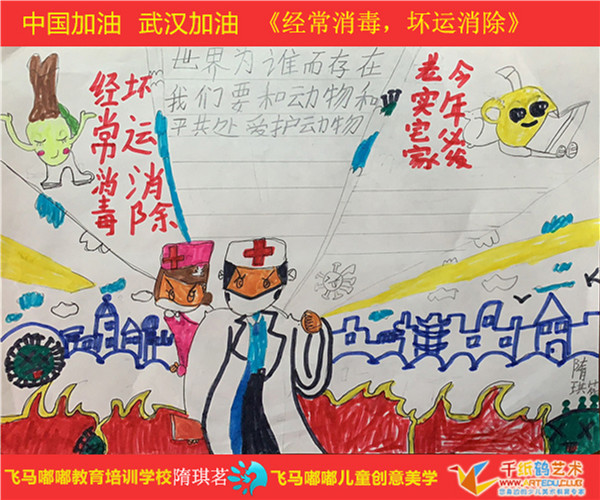 中国加油 武汉加油 《经常消毒，坏运消除》
世界为谁而存在
我们要和动物和
平共处 爱护动物
经常消毒
坏运消除
老实宅家
今年必发
隋
琪茗
飞马嘟嘟教育培训学校隋琪茗
飞马嘟嘟儿童创意美学
千纸鹤艺术